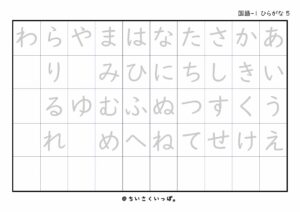 国語-1 ひらがな 5
あいうえ
かきくけ
さしすせ
たちつて
なにぬね
はひふへ
まみむめ
やゆ
らりるれ
わ
@ちいさくいっぽ。